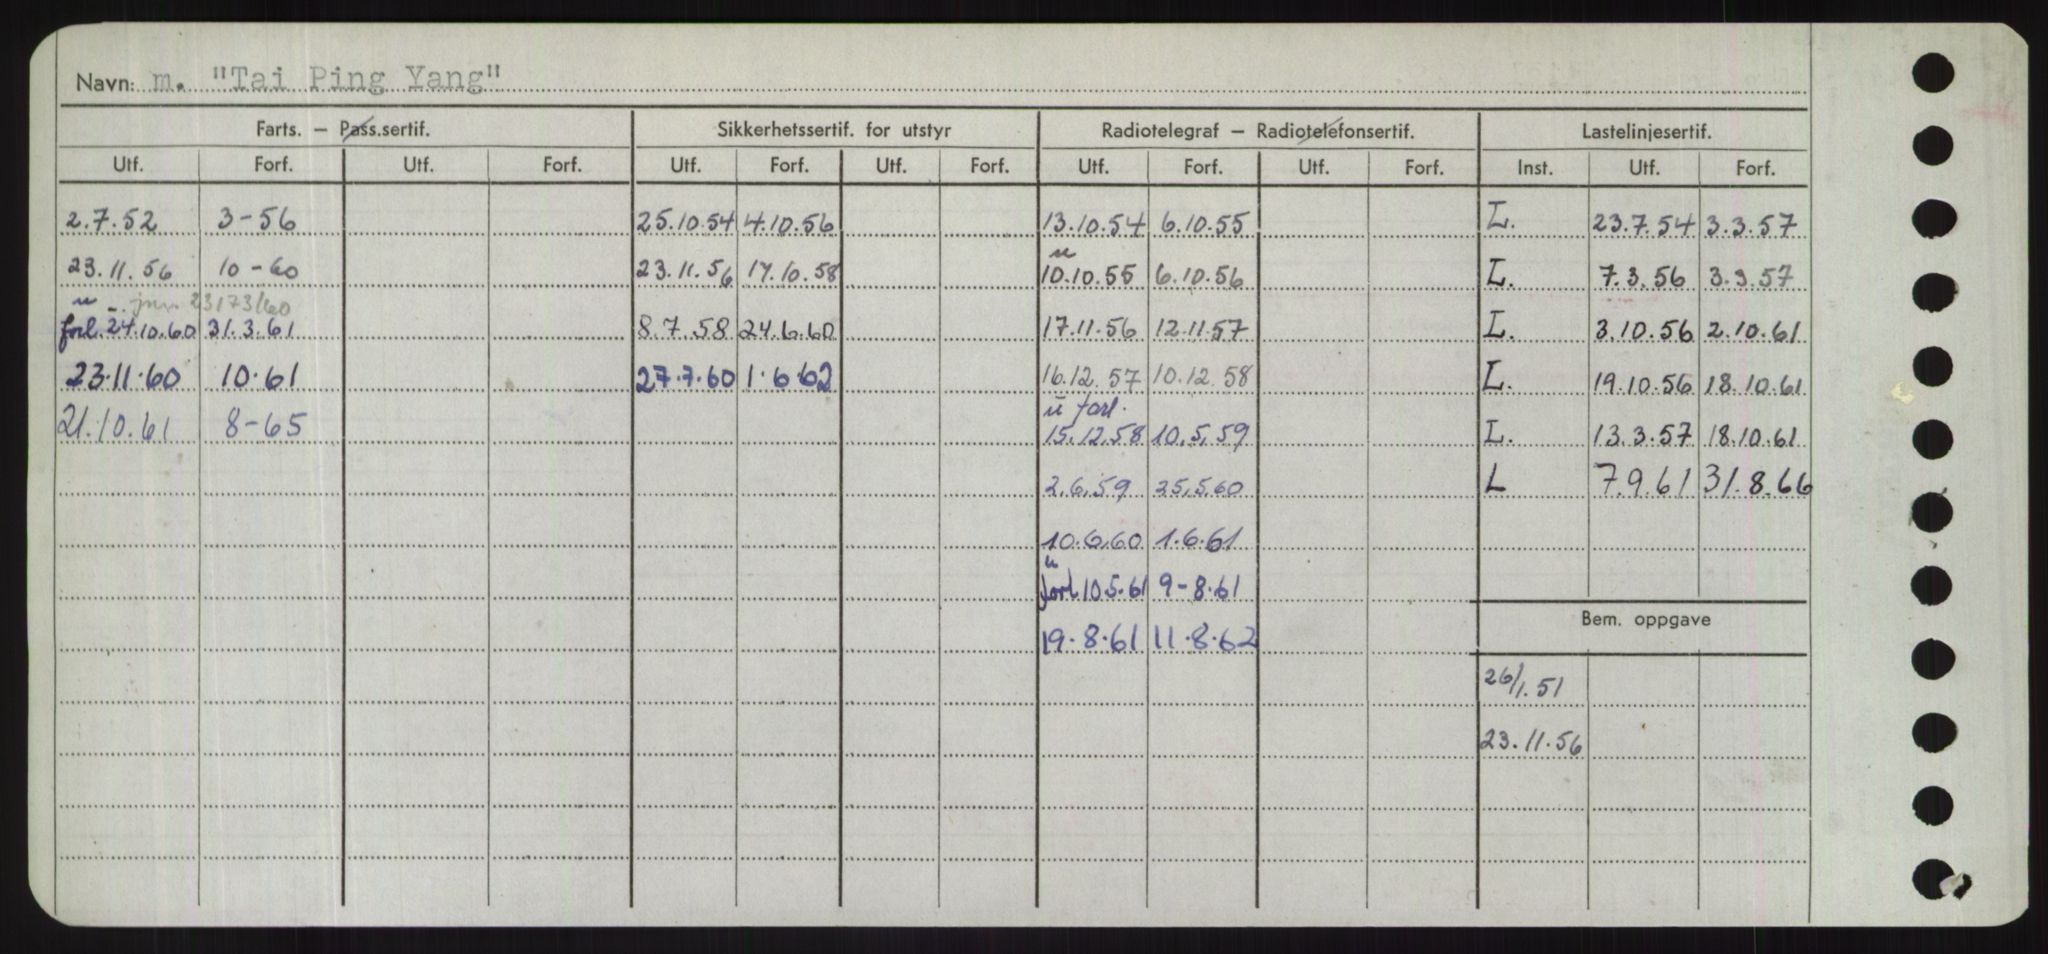 Navn: m. "Tai Ping Yang"
Farts. – Pass.sertif. Sikkerhetssertif. for utstyr Radiotelegraf – Radiotelefonsertif. Lastelinjesertif.
Utf. Forf. Utf. Forf. Utf. Forf. Utf. Forf. Utf. Forf. Utf. Forf. Inst. Utf. Forf.
2.7.52 3-56 25.10.54 4.10.56 13.10.54 6.10.55 L. 23.7.54 3.3.57
u
23.11.56 10-60 23.11.56 17.10.58 10.10.55 6.10.56 L. 7.3.56 3.3.57
u jnr. 23173/60
forl. 24.10.60 31.3.61 8.7.58 24.6.60 17.11.56 12.11.57 L. 3.10.56 2.10.61
23.11.60 10.61 27.7.60 1.6.62 16.12.57 10.12.58 L. 19.10.56 18.10.61
u forl.
21.10.61 8-65 15.12.58 10.5.59 L. 13.3.57 18.10.61
2.6.59 25.5.60 L 7.9.61 31.8.66
10.6.60 1.6.61
u
forl 10.5.61 9-8.61
Bem. oppgave
19.8.61 11.8.62
26/1.51
23.11.56